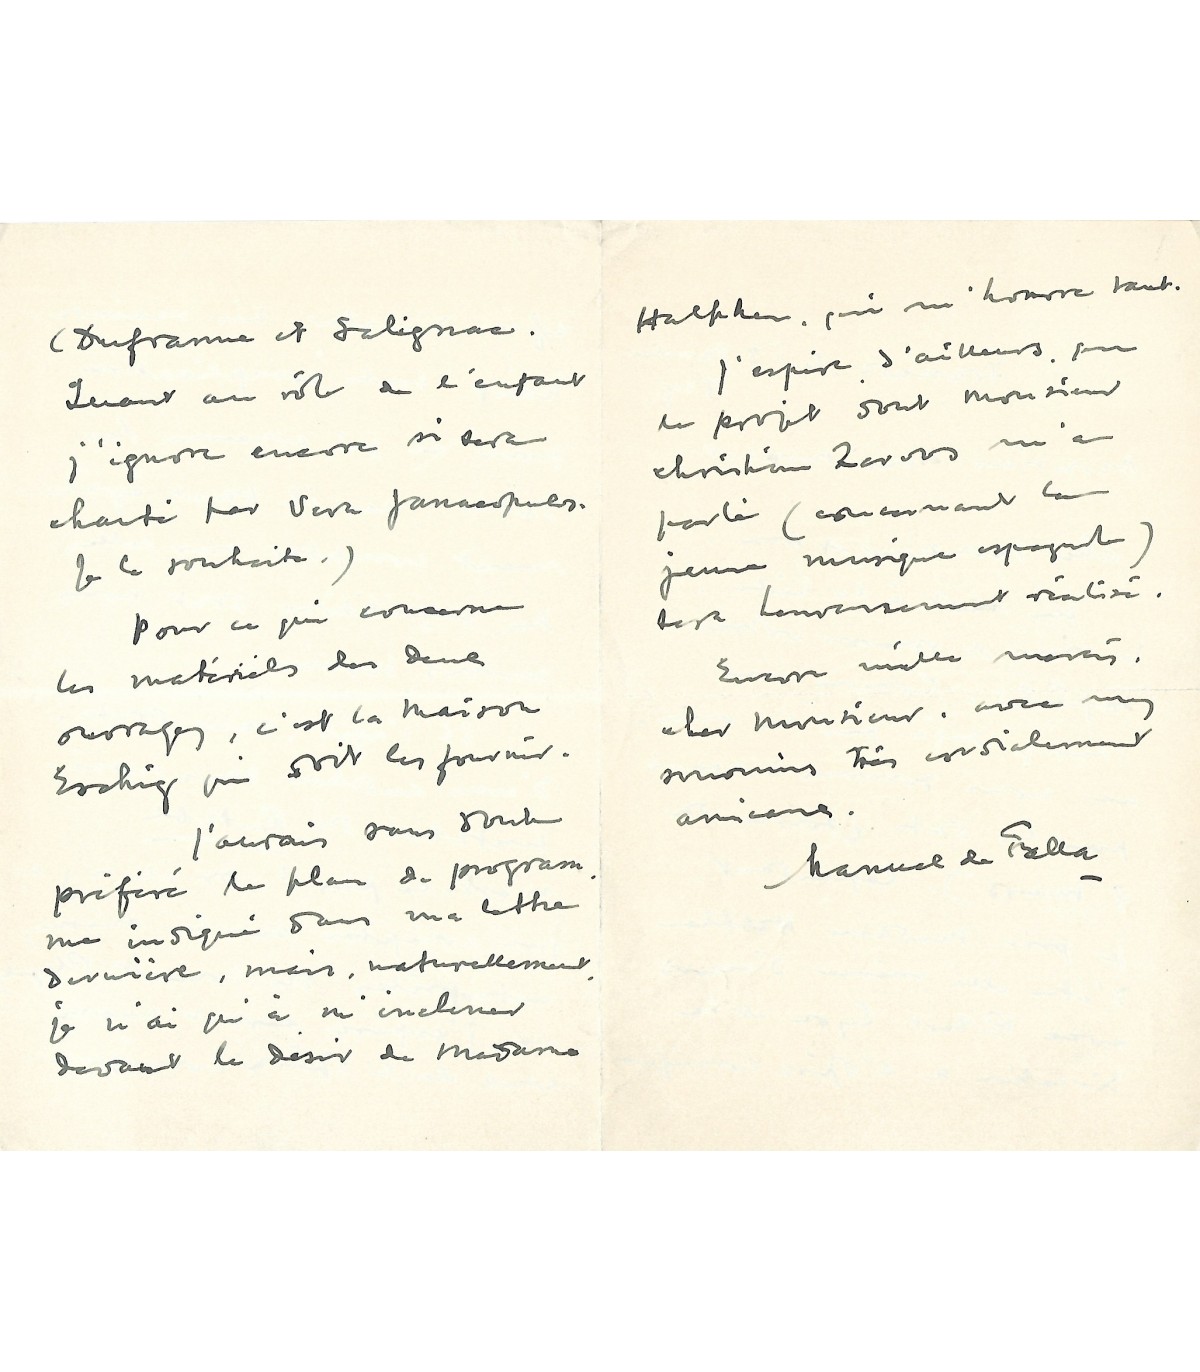 (Dufranne et Salignac.
Quant au rôle de l'enfant
j'ignore encore si sera
chanté par Vera Janacopulos.
Je le souhaite.)
Pour ce qui concerne
les matériels des deux
ouvrages, c'est la Maison
Eschig qui doit les fournir.
J'aurais sans doute
préféré le plan de program-
me indiqué dans ma lettre
dernière, mais, naturellement,
je n'ai qu'à m'incliner
devant le désir de Madame
Halphen, qui m'honore tant.
J'espère, d'ailleurs, que
le projet dont Monsieur
Christian Zervos m'a
parlé (concernant la
jeune musique espagnole)
sera heureusement réalisé.
Encore mille mercis,
cher Monsieur, avec mes
souvenirs très cordialement
amicaux.
Manuel de Falla